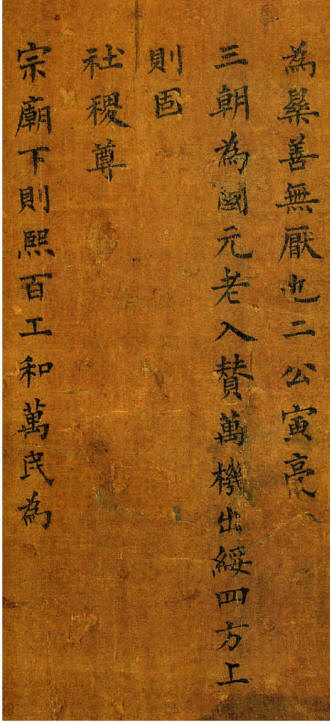 為樂善無厭也二公寅亮
三朝為國元老入贊萬機出綏四方上
則固
社稷尊
宗廟下則熙百工和萬民為